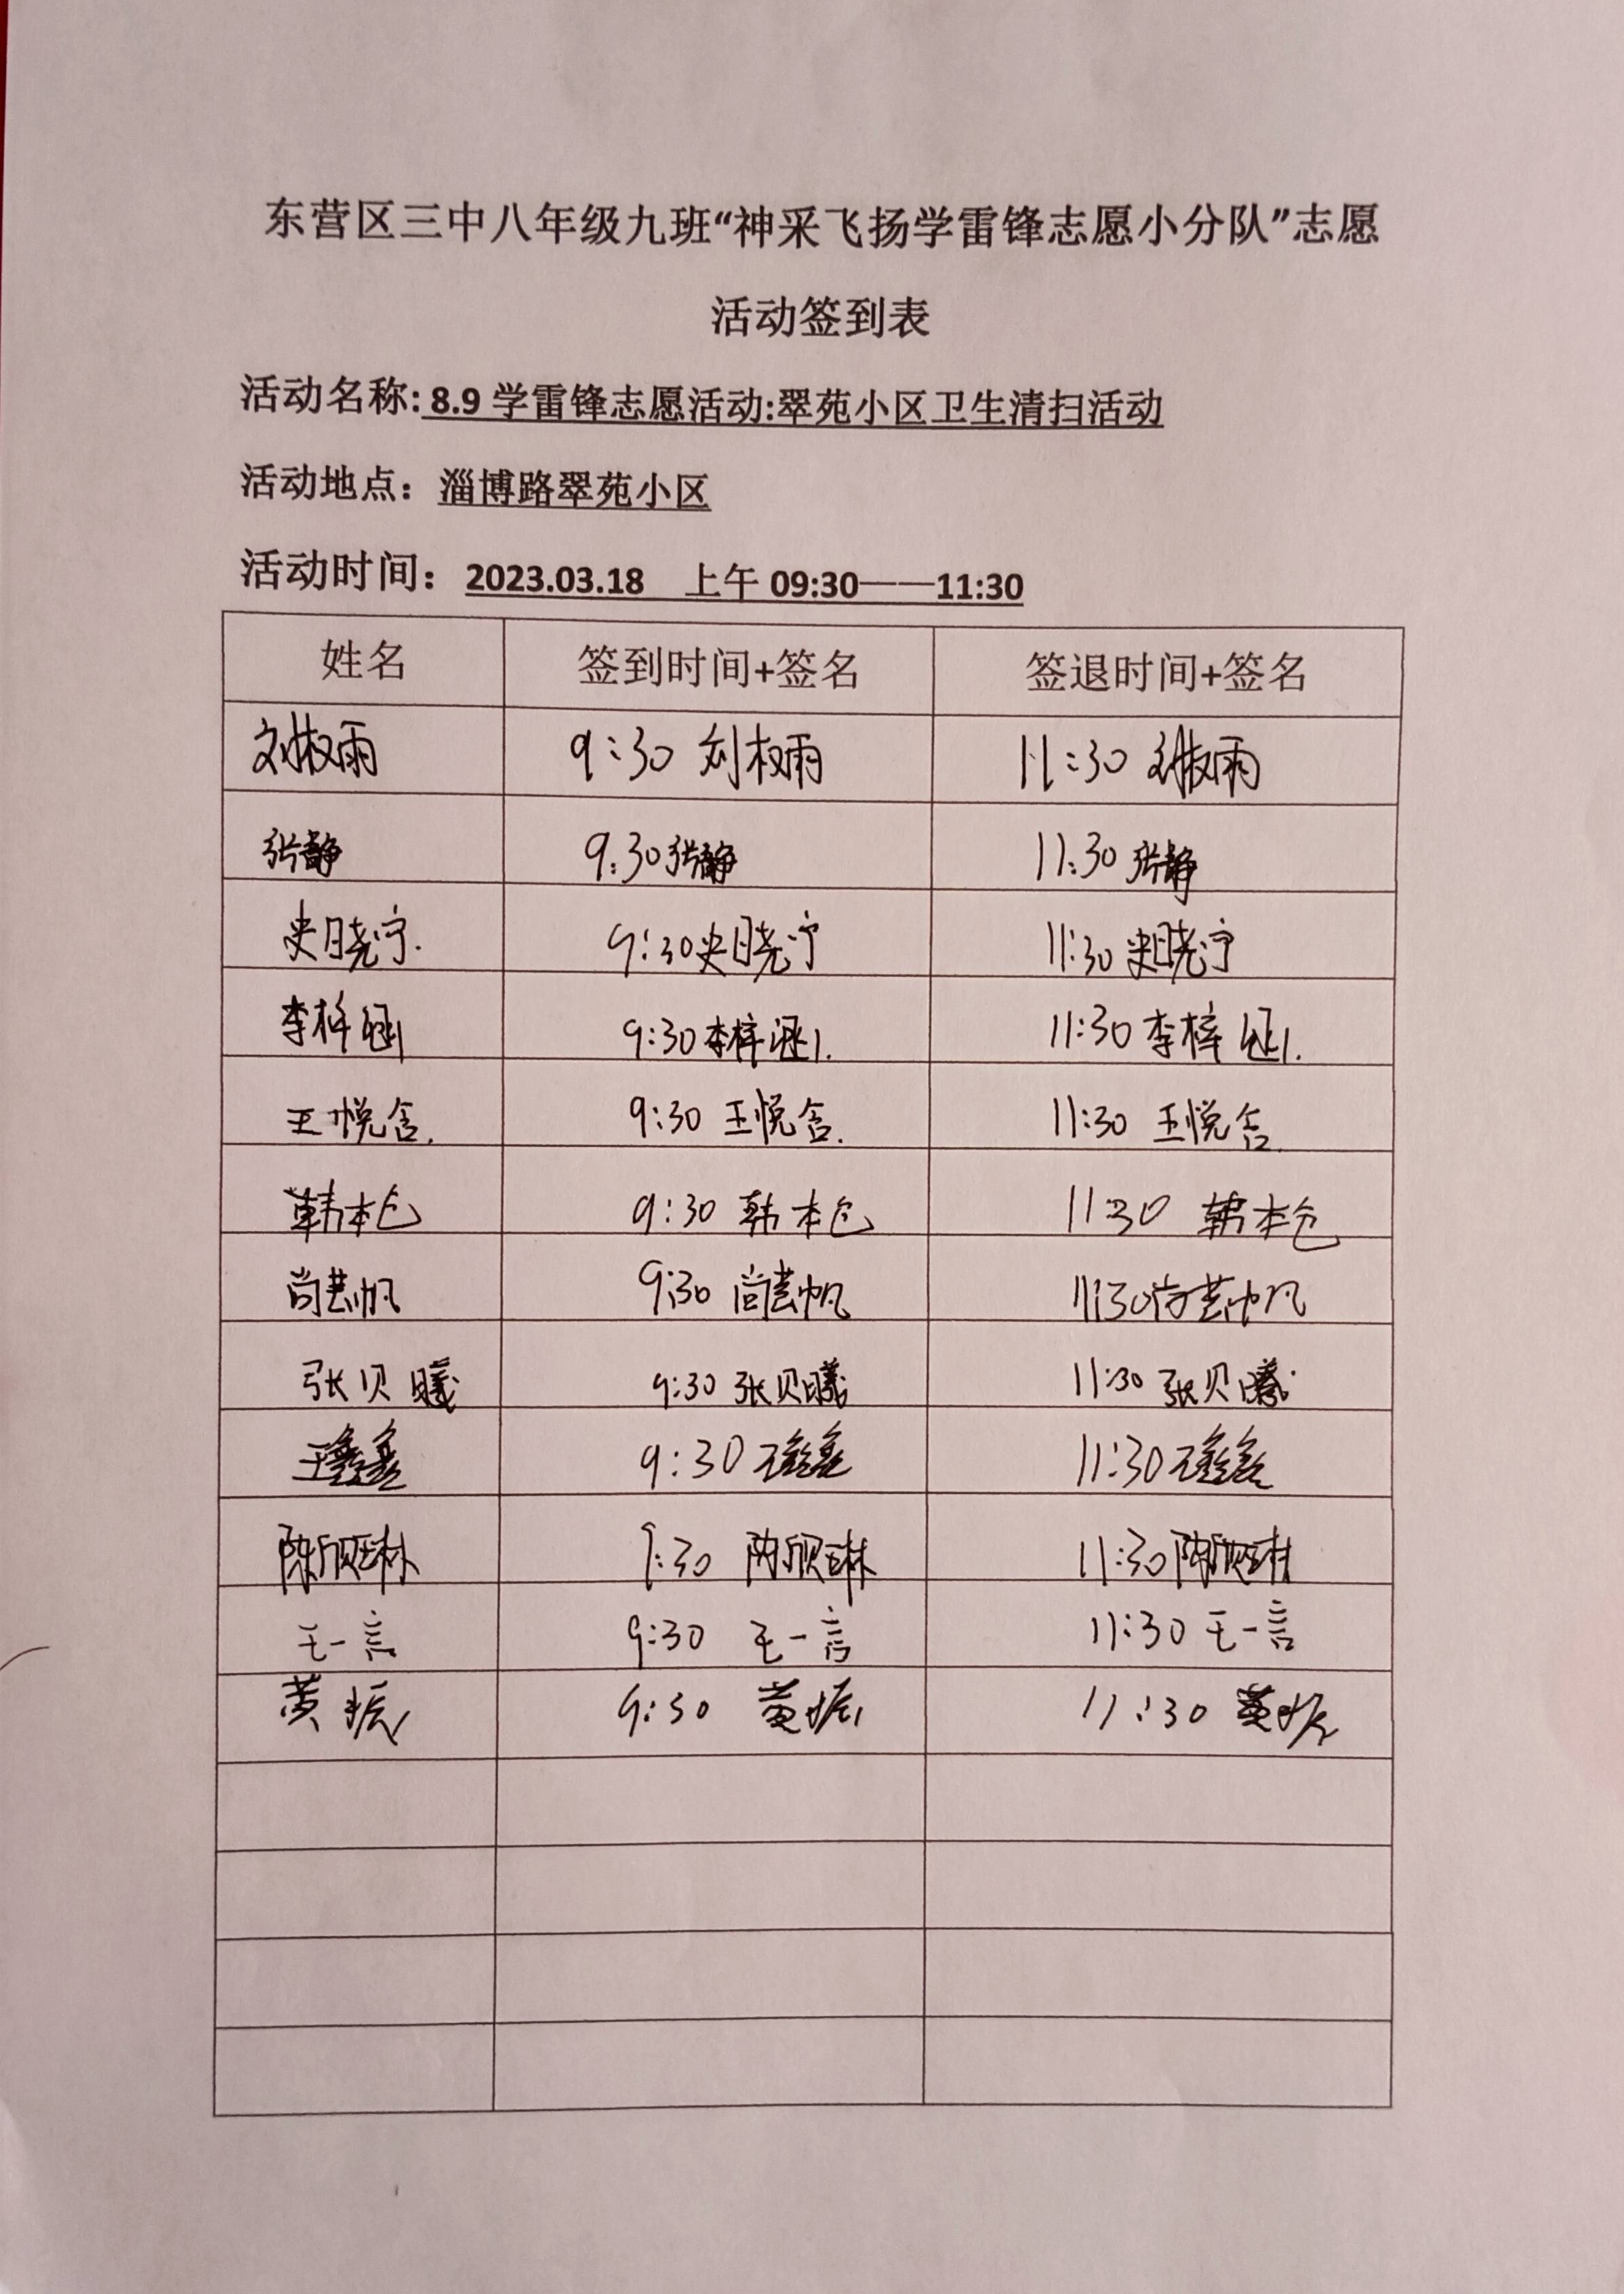 东营区三中八年级九班“神采飞扬学雷锋志愿小分队”志愿
活动签到表
活动名称: 8.9 学雷锋志愿活动:翠苑小区卫生清扫活动
活动地点：淄博路翠苑小区
活动时间：2023.03.18 上午 09:30——11:30
姓名 签到时间+签名 签退时间+签名
刘权雨 9:30 刘权雨 11:30 刘权雨
张静 9:30 张静 11:30 张静
史晓宁. 9:30 史晓宁 11:30 史晓宁
李梓涵 9:30 李梓涵. 11:30 李梓涵.
王悦含. 9:30 王悦含. 11:30 王悦含.
韩本仓 9:30 韩本仓 11:30 韩本仓
尚芸帆 9:30 尚芸帆 11:30 尚芸帆
张贝曦 9:30 张贝曦 11:30 张贝曦
王鑫鑫 9:30 王鑫鑫 11:30 王鑫鑫
陈欣琳 9:30 陈欣琳 11:30 陈欣琳
王一言 9:30 王一言 11:30 王一言
黄振 9:30 黄振 11:30 黄振